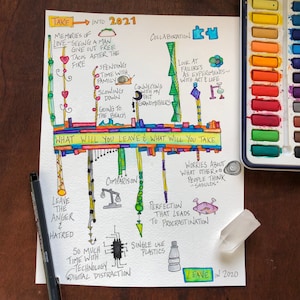 TAKE → INTO 2021
MEMORIES OF
LIFE - SEEING A MAN
GIVE OUT FREE
TACOS AFTER THE
FIRE
COLLABORATION
SPENDING
TIME WITH
FAMILY
SLOWING
DOWN
GOING TO
THE BEACH
CONNECTING
WITH MY
LOOK AT
FAILURES
AS EXPERIMENTS -
WITH ART & LIFE
WHAT WILL YOU LEAVE & WHAT WILL YOU TAKE
LEAVE
THE
ANGER
&
HATRED
COMPARISON
SO MUCH
TIME WITH
TECHNOLOGY
DIGITAL DISTRACTION
SINGLE USE
PLASTICS
PERFECTION
THAT LEADS
TO PROCRASTINATION
WORRIES ABOUT
WHAT OTHER
PEOPLE THINK
"SHOULDS"
LEAVE IN 2020